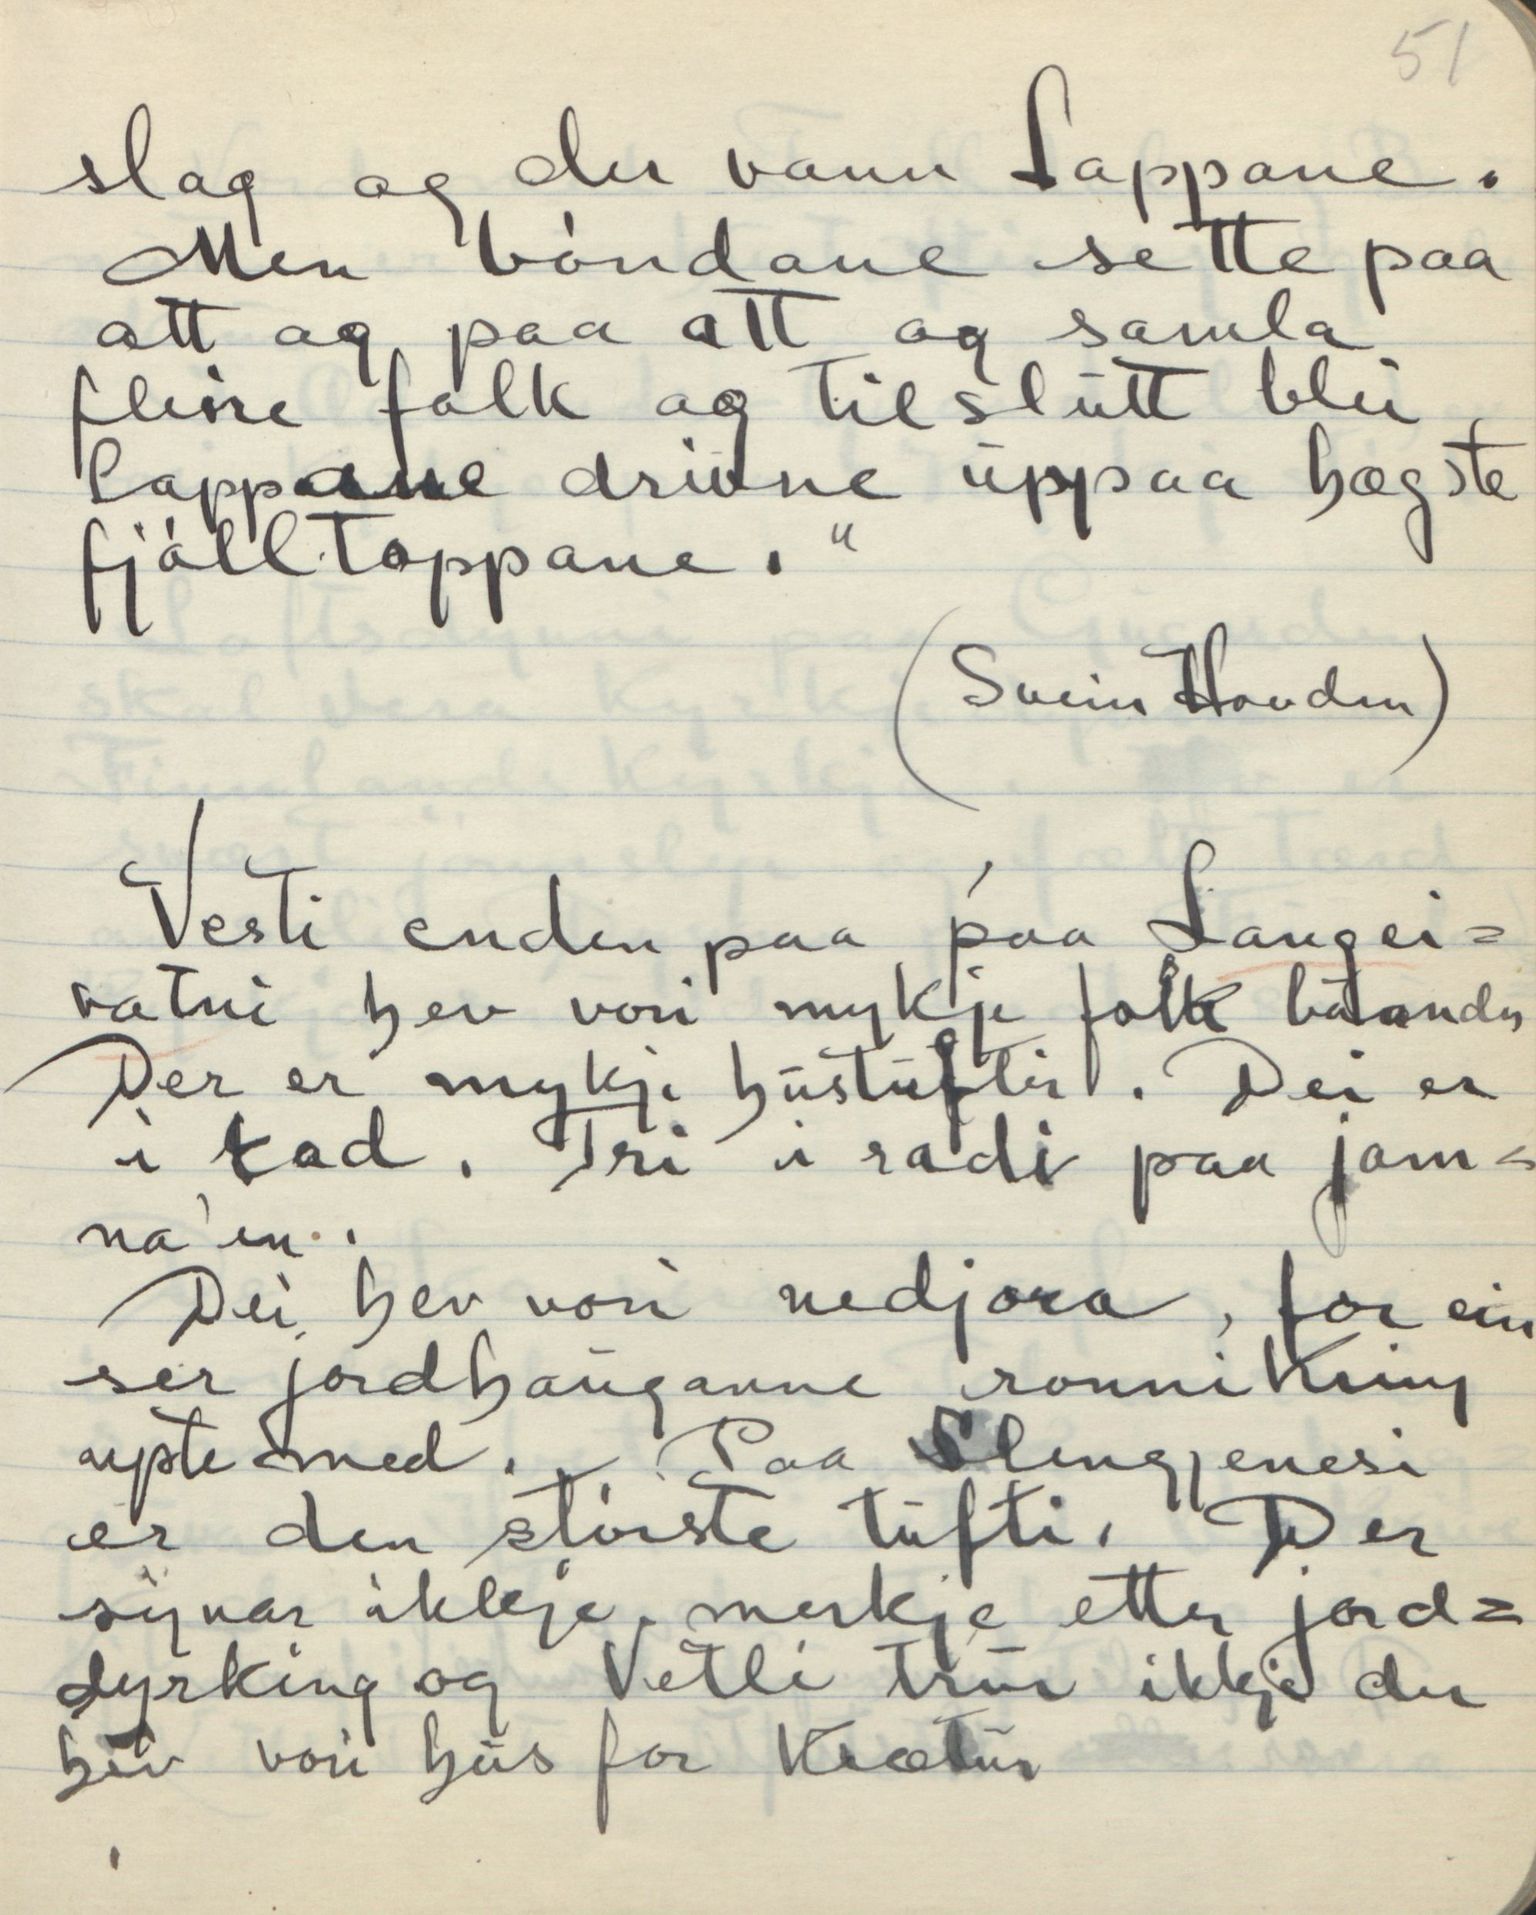 51
slag og der vann Lappane.
Men bóndane sette paa
att og paa att og samla
fleire folk og tilslutt blei
Lappane drivne uppaa høgste
fjálltoppane."
(Svein Hovden)
Vesti enden paa paa Langei=
vatni hev vori mykje folk búandes
Der er mykje hústufter. Dei er
i rad. Tri i radi paa jam=
na'en.
Dei hev vori nedjora, for ein
ser jordhauganne ronnikring
upte med. Paa Slengjenesi
er den største tufti. Der
synar ikkje merkje etter jord=
dyrking og Vetli trur ikkje der
hev vori hus for krøtur